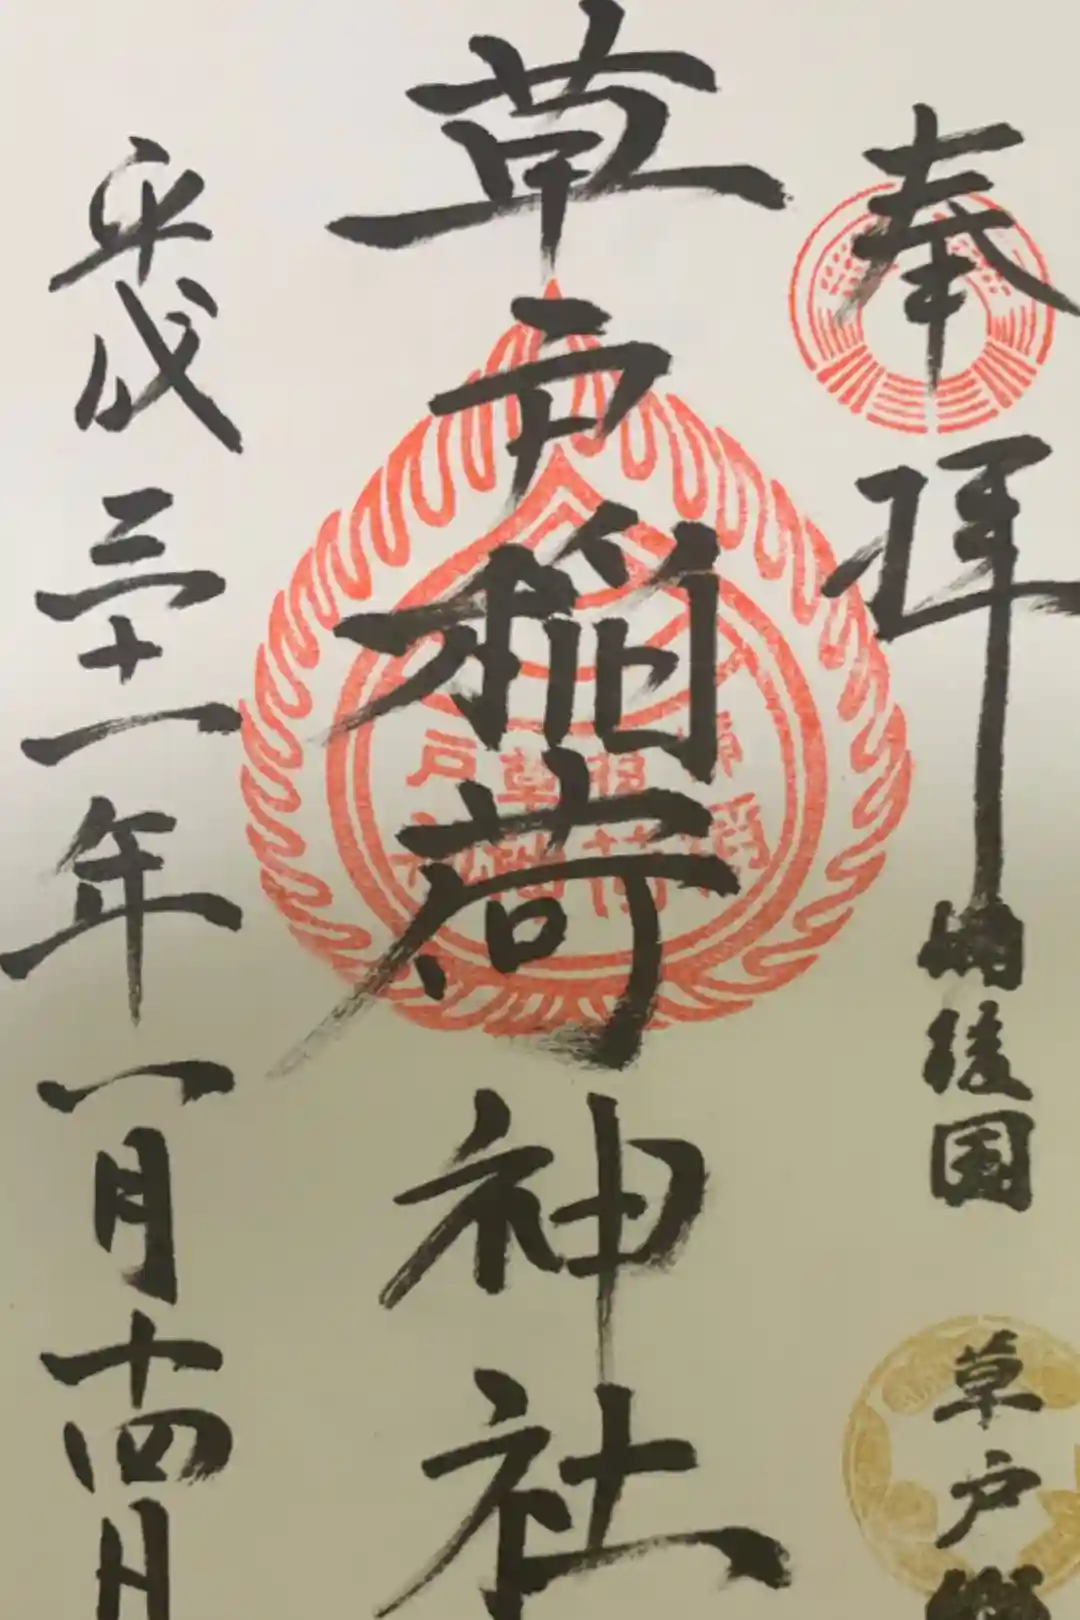 奉拝
備後国
草戸郷
草戸稲荷神社
平成三十一年一月十四日